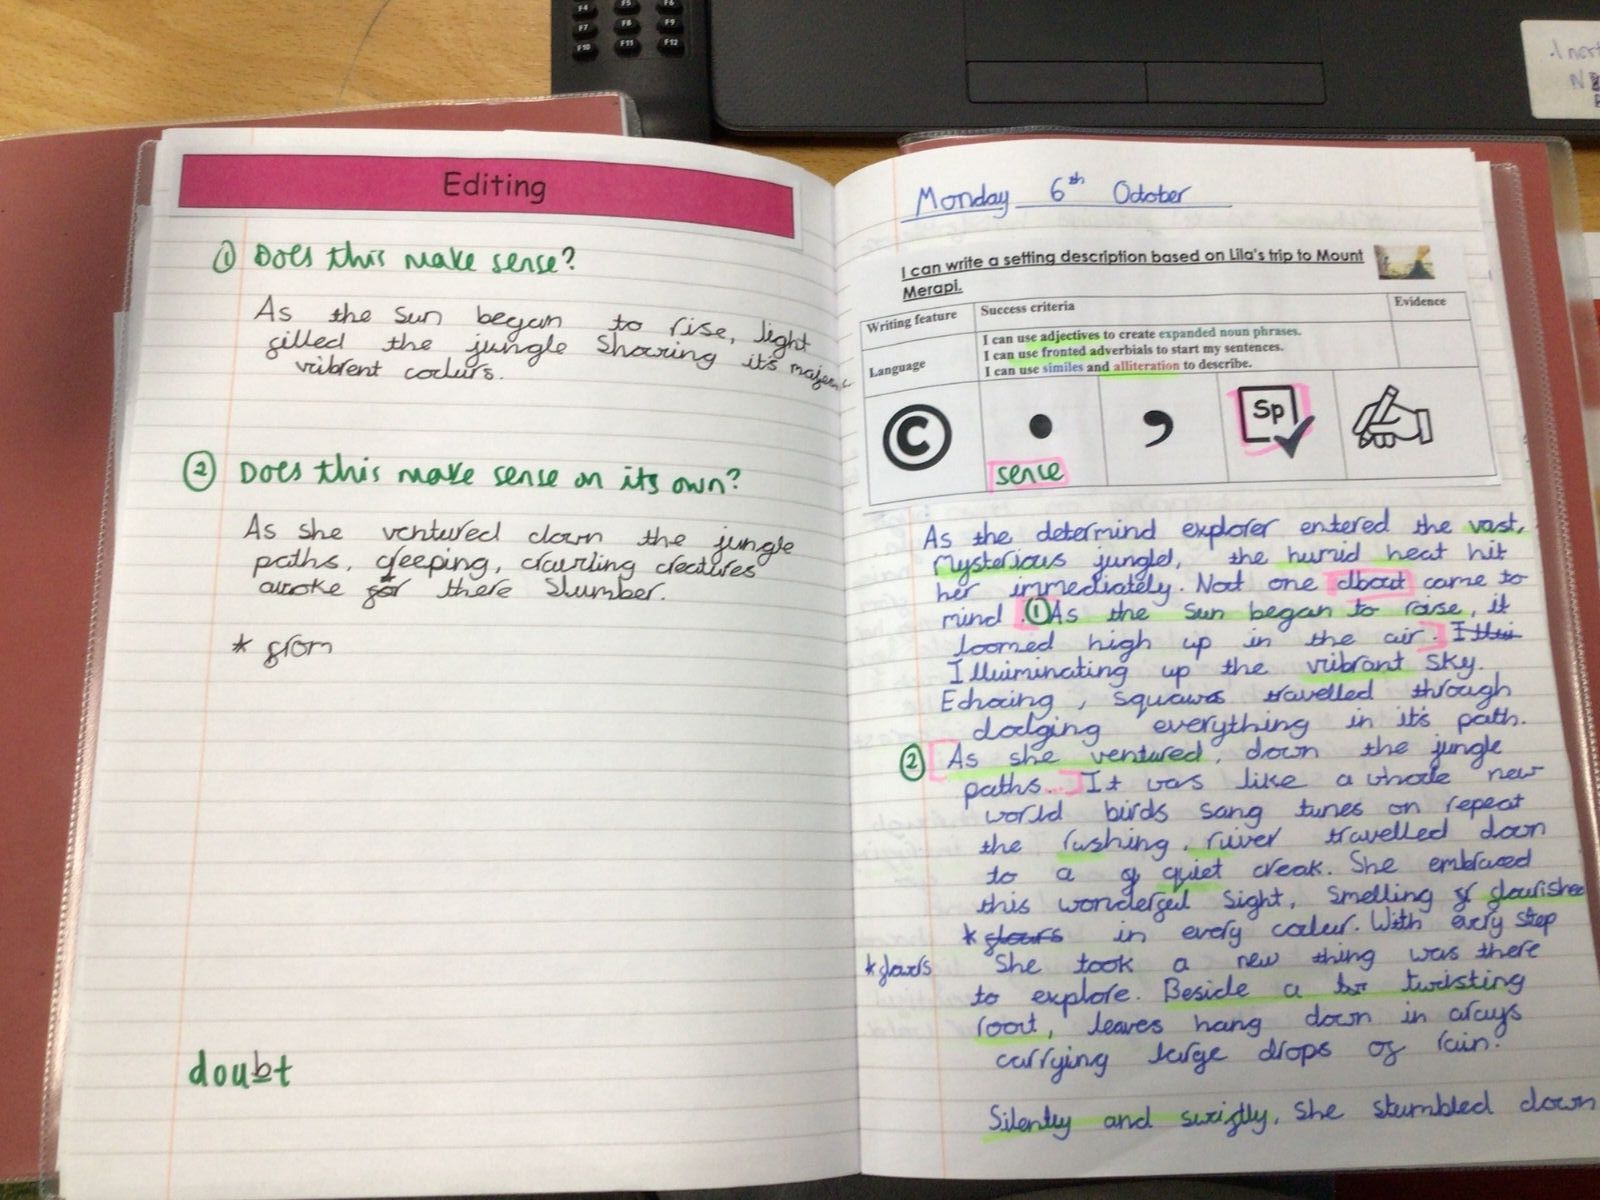 F4 F5 F6
F7 F8 F9
F10 F11 F12
Editing
① Does this make sense?
As the sun began to rise, light
filled the jungle Showing it's
vribrent colurs.
② Does this make sense on its own?
As she ventured down the jungle
paths, creeping, crawling creatures
awoke for there Slumber.
* from
doubt
Monday 6th October
I can write a setting description based on Lila's trip to Mount
Merapi.
Writing feature Success criteria Evidence
Language
I can use adjectives to create expanded noun phrases.
I can use fronted adverbials to start my sentences.
I can use similes and alliteration to describe.
© • , Sp
sence
As the determind explorer entered the vast,
Mysterious jungle, the humid heat hit
her immediately. Not one dbout came to
mind. ① As the Sun began to raise, it
loomed high up in the air.
Illuiminating up the vribrant sky.
Echoing, Squawks travelled through
dodging everything in it's path.
② As she ventured, down the jungle
paths... It was like a whole new
world birds sang tunes on repeat
the rushing, river travelled down
to a quiet creak. She embraced
this wonderful Sight, Smelling flourished
* flours in every colur. With every step
* flowrs She took a new thing was there
to explore. Beside a twisting
root, leaves hang down in arays
carrying large drops of rain.
Silently and swiftly, She stumbled down